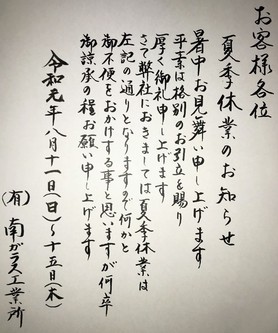 お客様各位
夏季休業のお知らせ
暑中お見舞い申し上げます
平素は格別のお引立を賜り
厚く御礼申し上げます
さて弊社におきましては夏季休業は
左記の通りとなりますので何かと
御不便をおかけする事と思いますが何卒
御諒承の程お願い申し上げます
令和元年八月十一日(日)～十五日(木)
(有)南ガラス工業所